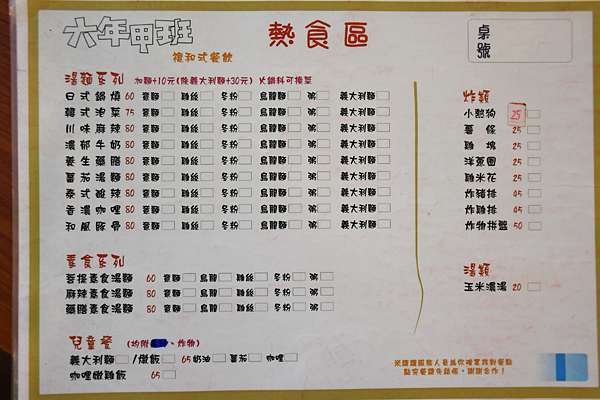 六年甲班
複和式餐飲
熱食區
桌號
湯麵系列 加麵+10元(換義大利麵+30元) 火鍋料可換菜
日式鍋燒 60 意麵 雞絲 冬粉 烏龍麵 粥 義大利麵
韓式泡菜 75 意麵 雞絲 冬粉 烏龍麵 粥 義大利麵
川味麻辣 80 意麵 雞絲 冬粉 烏龍麵 粥 義大利麵
濃郁牛奶 80 意麵 雞絲 冬粉 烏龍麵 粥 義大利麵
養生藥膳 80 意麵 雞絲 冬粉 烏龍麵 粥 義大利麵
蕃茄湯麵 80 意麵 雞絲 冬粉 烏龍麵 粥 義大利麵
泰式酸辣 80 意麵 雞絲 冬粉 烏龍麵 粥 義大利麵
香濃咖哩 80 意麵 雞絲 冬粉 烏龍麵 粥 義大利麵
和風豚骨 80 意麵 雞絲 冬粉 烏龍麵 粥 義大利麵
素食系列
菩提素食湯麵 60 意麵 烏龍 雞絲 冬粉 粥
麻辣素食湯麵 80 意麵 烏龍 雞絲 冬粉 粥
藥膳素食湯麵 80 意麵 烏龍 雞絲 冬粉 粥
兒童餐 (均附、炸物)
義大利麵 /燉飯 65 奶油 蕃茄 咖哩
咖哩雞飯 65
炸類
小熱狗 25
薯條 25
雞塊 25
洋蔥圈 25
雞米花 25
炸豬排 45
炸雞排 45
炸物拼盤 50
湯類
玉米濃湯 20